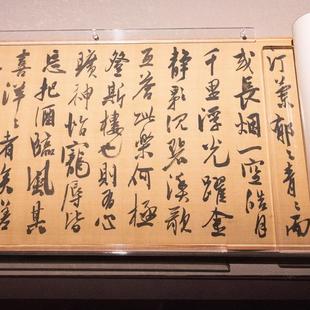 汀蘭郁〻青〻而
或長烟一空皓月
千里浮光躍金
静影沉碧漁歌
互荅此樂何極
登斯樓也則有心
曠神怡寵辱皆
忘把酒臨風其
喜洋〻者矣